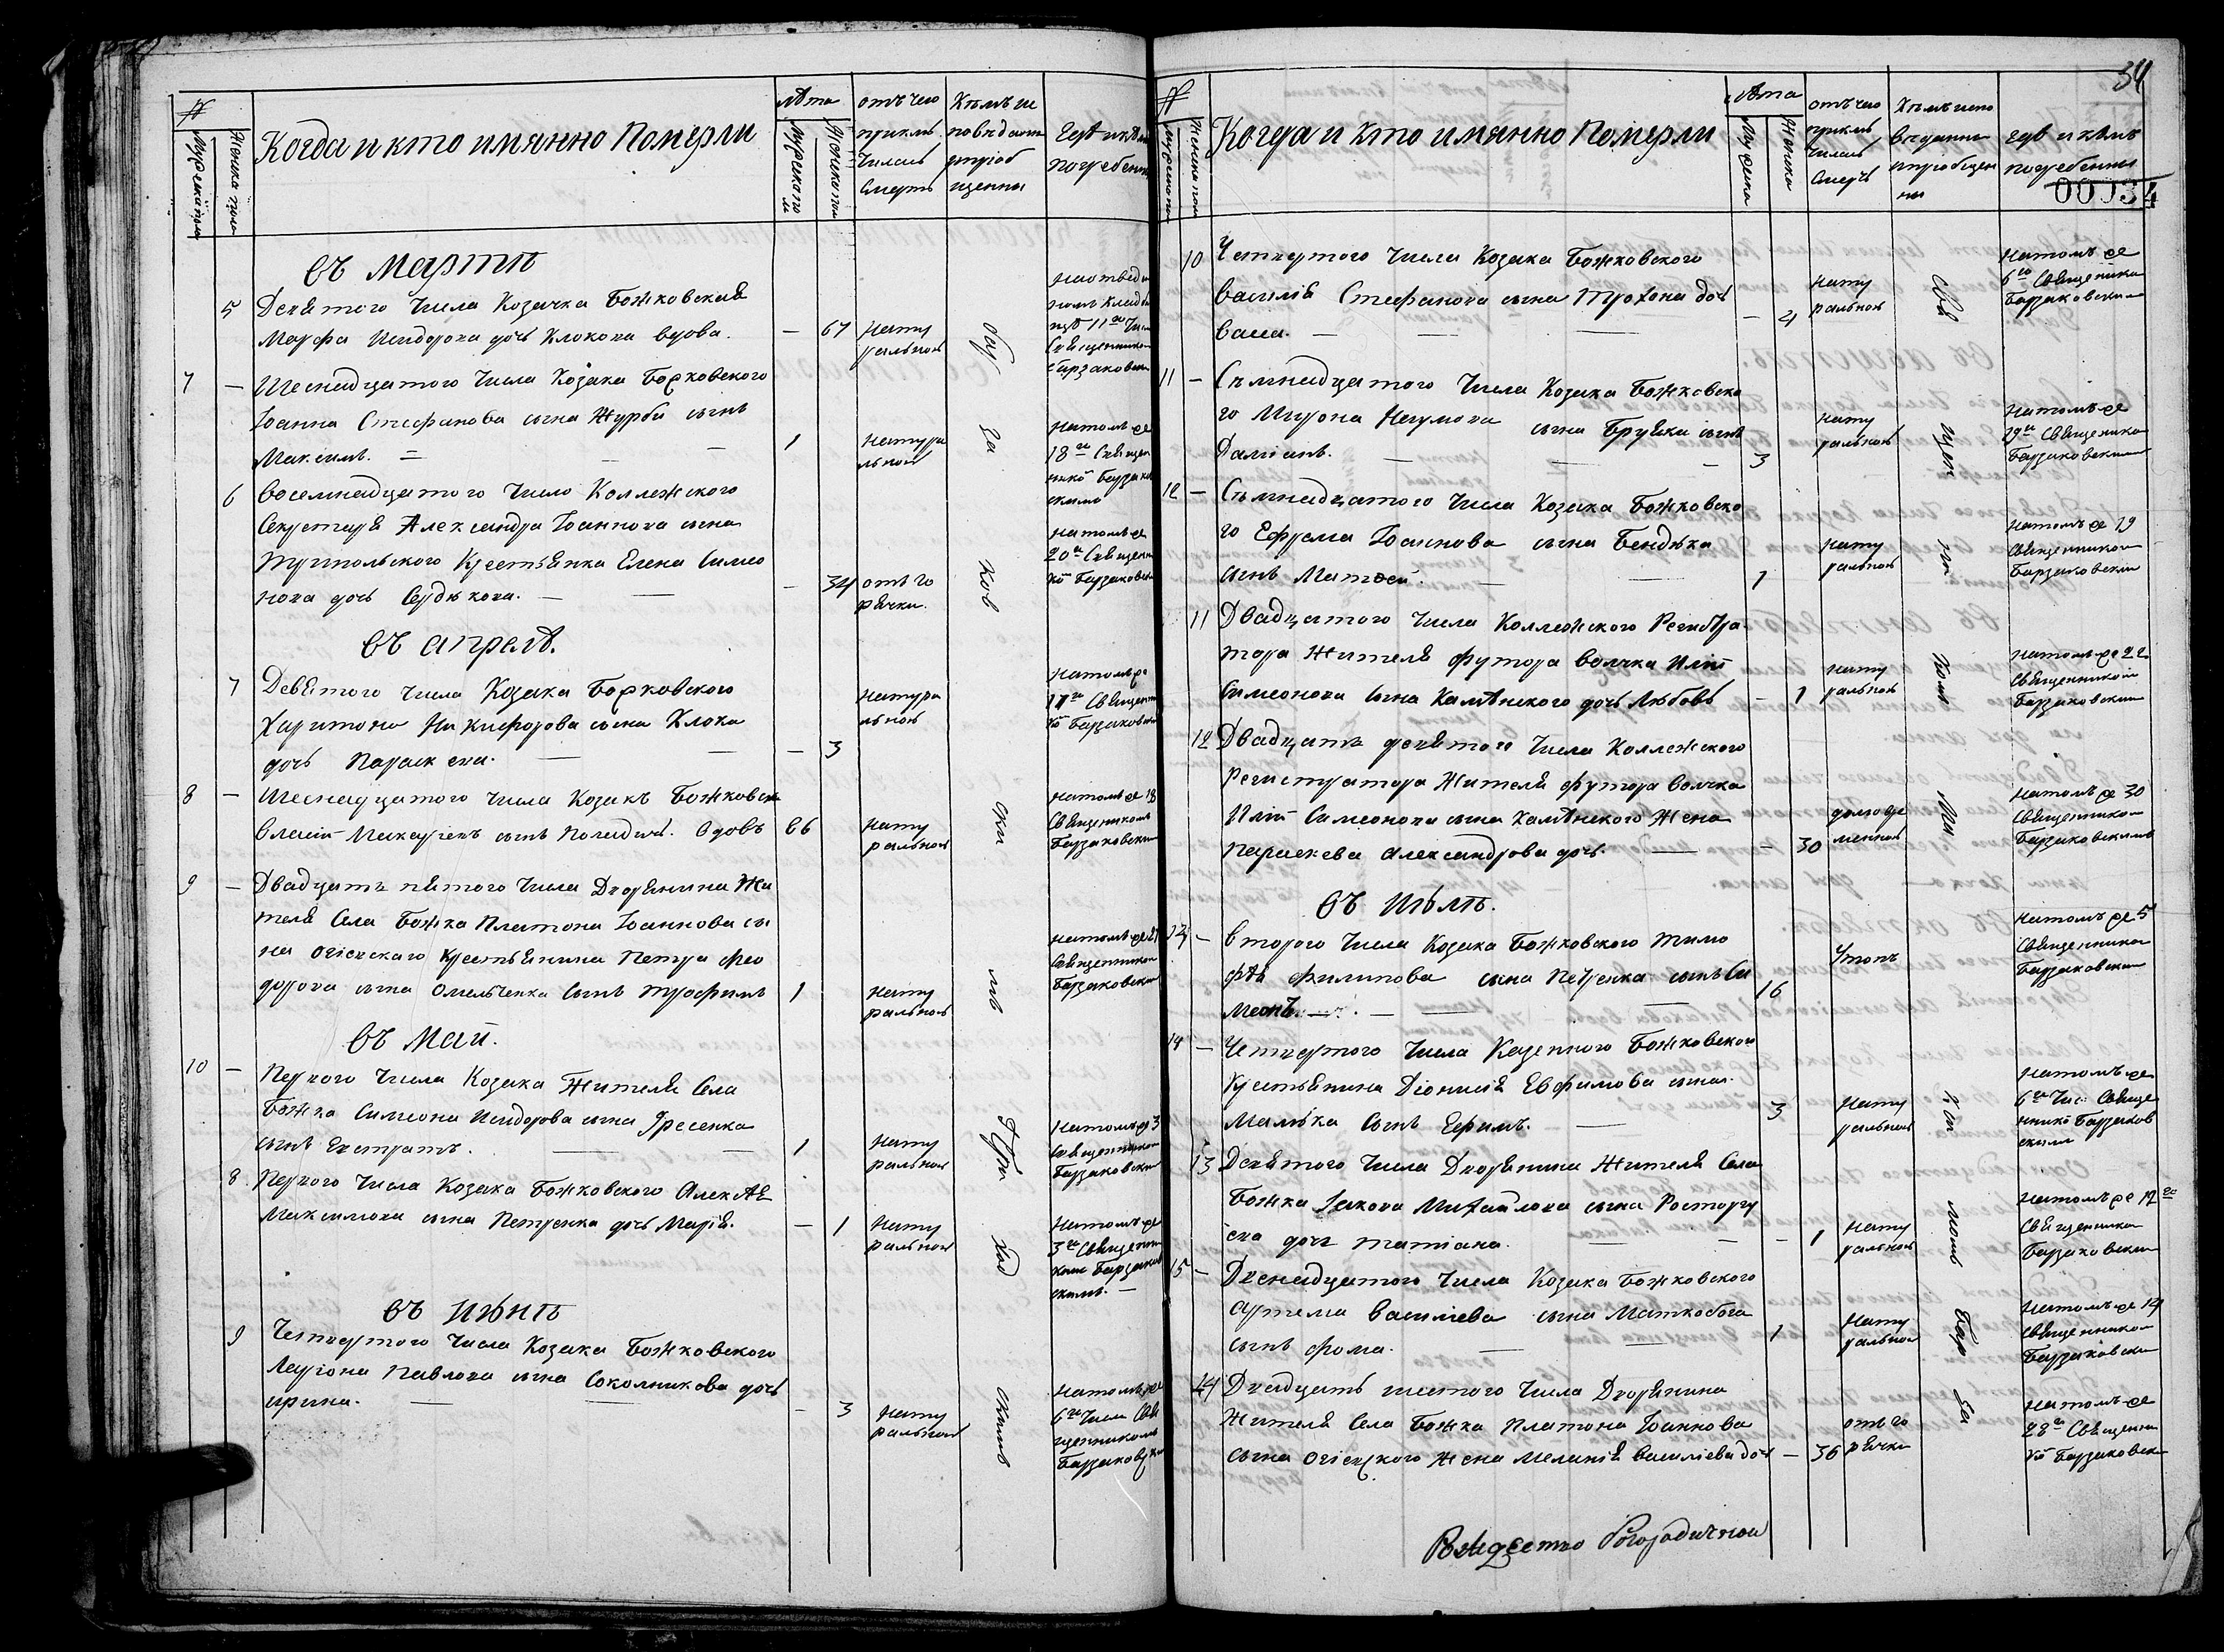 №
Мужеска пола
Женска пола
Когда и кто имянно Померли
лѣта
Мужеска пол
Женска пол
отъ чего
приклю
чилась
Смерть
Кѣмъ ис
повѣданы
и приоб
щенны
Гдѣ и кѣмъ
погребенны
въ Мартѣ
5 Девятого Числа Козачка Божковская
Марфа Исидорова дочь Клокова вдова. — 67
Нату
ральной
7 — Шеснадцатого Числа Козака Божковского
Іоанна Стефанова сына Журби сынъ
Максимъ. — 1
натура
льной
На томъ же
18го Священ
никъ Барзаков
скимъ
6 Восемнадцатого Число Коллежского
Секретаря Александра Іоаннова сына
Крестьянка Елена Симео
нова дочь Сердюкова. — 34
отъ го
рячки.
На томъ же
20го Священ
въ Апрелѣ.
7 Девятого числа Козака Божковского
Харитона Никифорова сына Клока
дочь Параскева. — 3
натура
льной
На томъ же
8 — Шеснадцатого Числа Козакъ Божковск
Власій Макаріевъ сынъ вдовъ 66
Нату
ральной
На томъ же 18
Священникомъ
Барзаковским
9 — Двадцать пятого Числа Дворянина Жи
теля Села Божка Платона Іоаннова сы
на Огіевскаго Крестьянина Петра Фео
дорова сына Омельченка Сынъ Трофимъ 1
Нату
ральной
На томъ же 27
Священникомъ
Барзаковским
въ Маіи.
10 — Первого Числа Козака Жителя Села
Божка Симеона Исидорова сына
сынъ Евстратъ. — 1
Нату
ральной
На томъ же 3
Священником
Барзаковским
8. Первого Числа Козака Божковского Алексѣя
Максимова сына Петренка дочь Марія. — 1
Нату
ральной
На томъ же
3го Священни
комъ Барзаков
скимъ. —
въ Июнѣ
9 Четвертого Числа Козака Божковского
Ларіона Павлова сына Соколникова дочь
ирина. — 3
Нату
ральной
На томъ же
6го Числа Свя
щенникомъ
Барзаковским
34
00034
№
Мужеска пол
Женска пол
Когда и кто имянно Померли
лѣта
Мужеска
Женска
отъ чего
приклю
чилась
Смерть
Кѣмъ испо
вѣданны
и приобщен
ны
Гдѣ и кѣмъ
погребенны
10 Четвертого Числа Козака Божковского
Василія Стефанова сына Трохона доч
Васса. — 4
нату
ральной
На томъ же
6го Священика
Барзаковским
11 — Съмнадцатого Числа Козака Божковско
го Мирона Наумова сына сынъ
Даміанъ. — 3
нату
ральной
На томъ же
19го Священика
Барзаковским
12 — Съмнадцатого Числа Козака Божковско
го Ефрема Іоаннова сына Бендюка
сынъ Матфей. — 1
нату
ральной
На томъ же 19
Священником
Барзаковским
11 Двадцатого Числа Коллежского Регистра
тора Жителя футора Волчка Иліи
Симеонова Сына Калѣнского дочь Любовь — 1
нату
ральной
На томъ же 22
Священником
Барзаковским
12 Двадцать девятого Числа Коллежского
Регистратора Жителя футора Волчка
Иліи Симеонова сына Калѣнского Жена
Параскева Александрова дочь. — 30
долговре
менной
На томъ же 30
Священником
Барзаковскимъ
въ Июлѣ.
13 — Второго Числа Козака Божковского Тимо
фѣя Филипова сына Петренка сынъ Си
меонъ. — 16
Утопъ
На томъ же 5
Священника
Барзаковским
14 — Четвертого Числа Казенного Божковского
Крестьянина Діонисія Евфимова сына
Малька Сынъ Ефимъ. — 3
Нату
ральной
На томъ же
6го Чис Свяще
нникъ Барзаков
ским
13 Девятого Числа Дворянина Жителя Села
Божка Іакова Михайлова сына Росторгу
ева дочь татіана. — 1
Нату
ральной
На томъ же 12го
Священника
Барзаковским
15 — Двенадцатого Числа Козака Божковского
Артема Василіева сына
сынъ Фома. — 1
Нату
ральной
На томъ же 14
Священником
Барзаковским
14 Двадцать шестого Числа Дворянина
Жителя Села Божка Платона Іоаннова
сына Огіевского Жена Меланія Василіева доч — 36
отъ го
рячки
На томъ же
28го Священни
къ Барзаковск
Рождество Богородичной